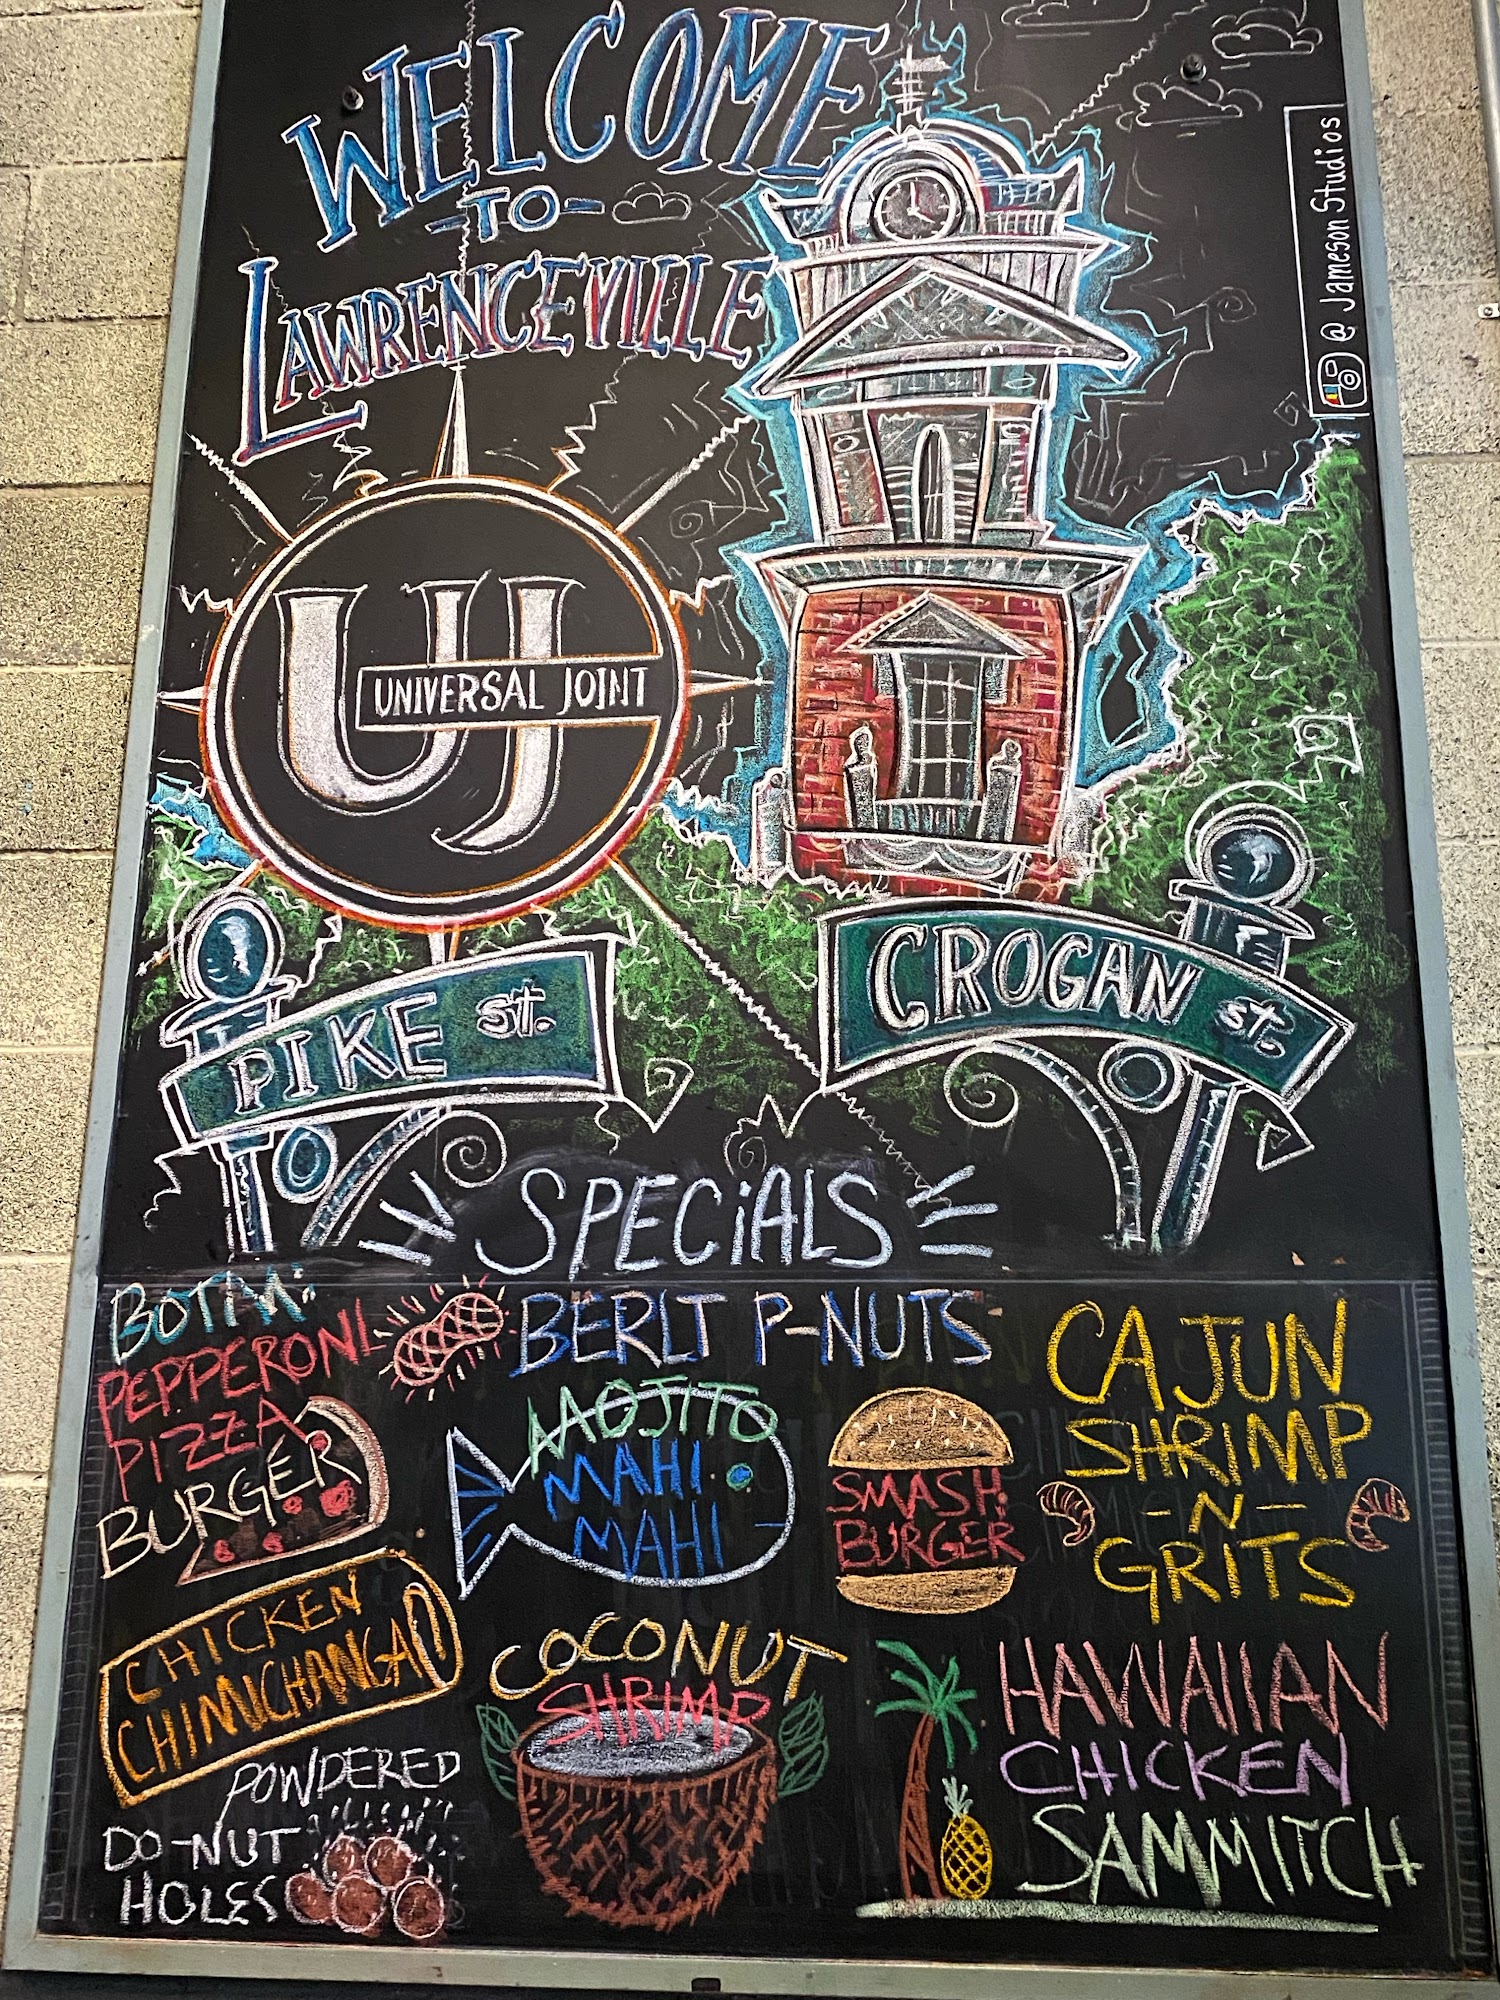 WELCOME
-TO-
LAWRENCEVILLE
@ Jameson Studios
UJ
UNIVERSAL JOINT
PIKE st.
CROGAN st.
SPECiALS
BOTM:
PEPPERONI
PIZZA
BURGER
BERLT P-NUTS
MOJITO
MAHI
MAHI
SMASH
BURGER
CAJUN
SHRIMP
-N-
GRITS
CHICKEN
CHIMICHANGA
COCONUT
SHRIMP
HAWAIIAN
CHICKEN
SAMMITCH
POWDERED
DO-NUT
HOLES